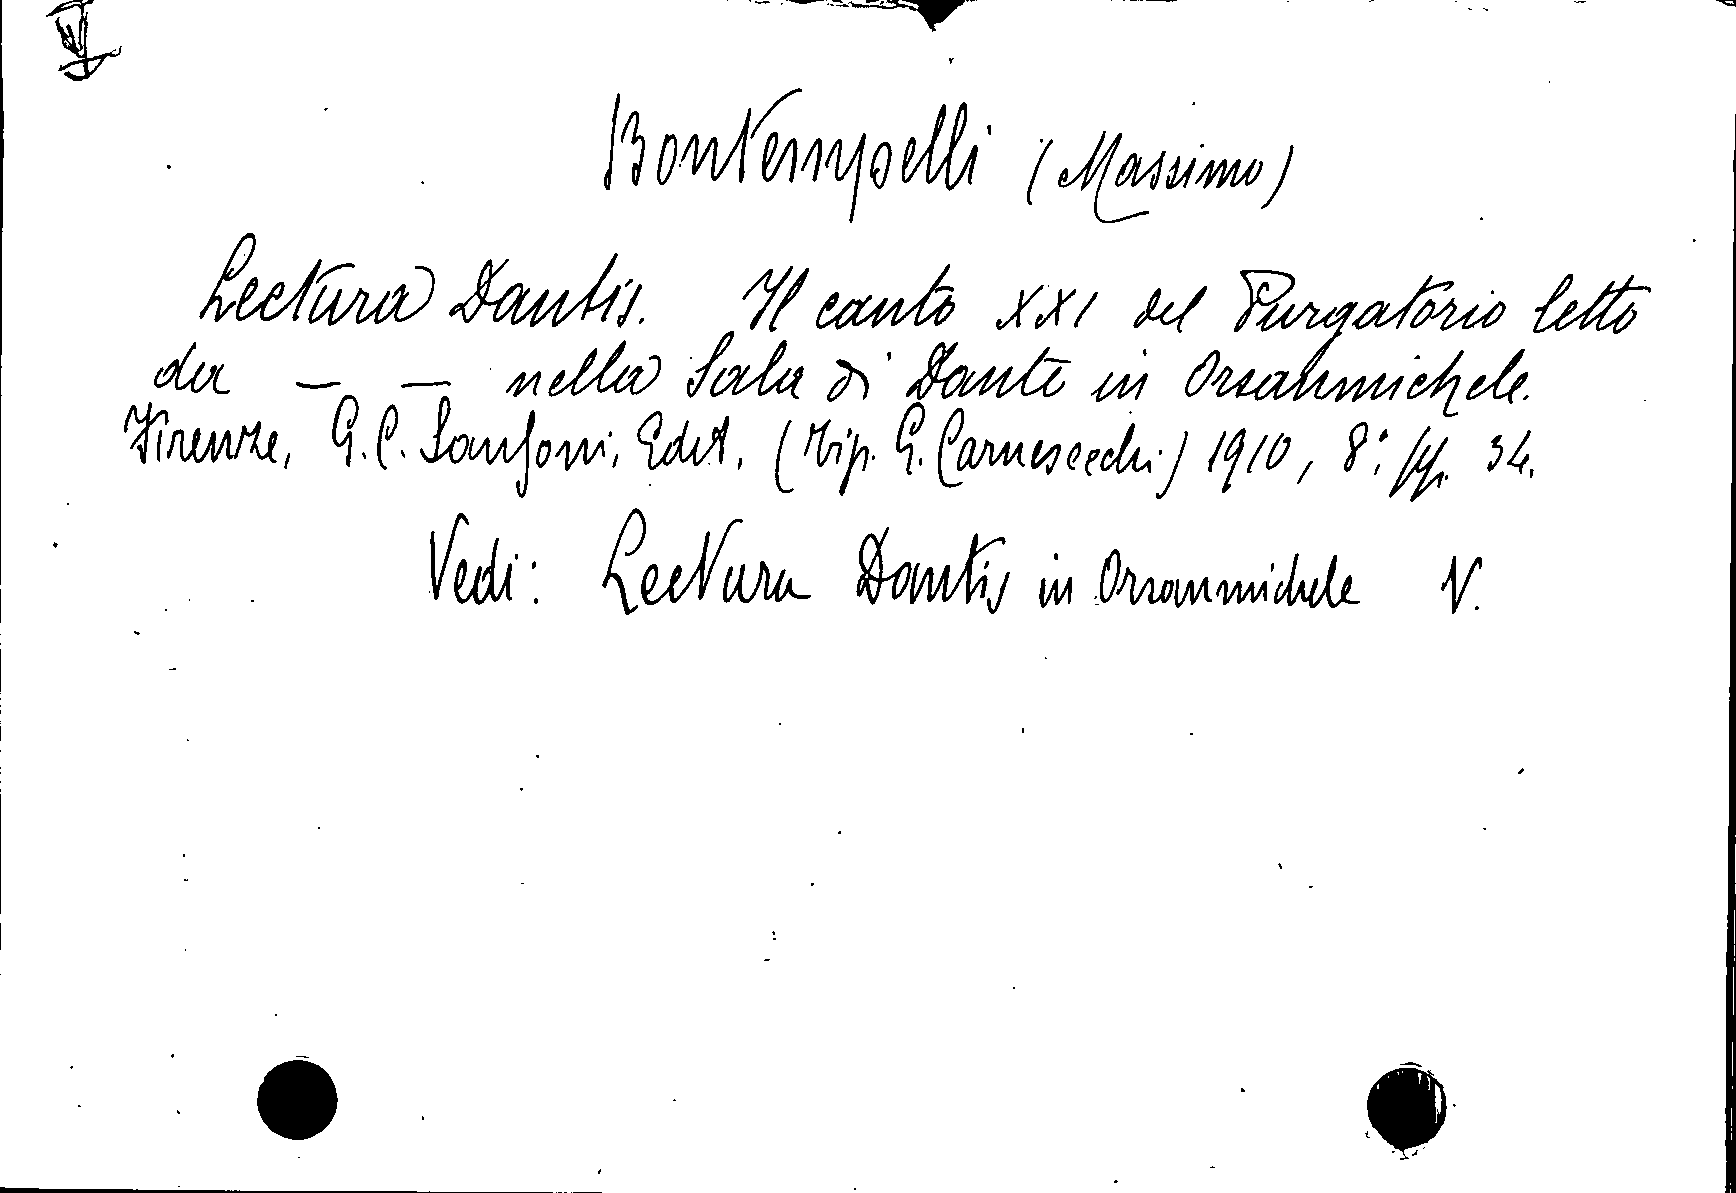 Bontempelli (Massimo)
Lectura Dantis. Il canto XXI del Purgatorio letto
da — — nella Sala di Dante in Orsanmichele.
Firenze, G. C. Sansoni, Edit. (Tip. G. Carnesecchi) 1910, 8°. pp. 34.
Vedi: Lectura Dantis in Orsanmichele V.